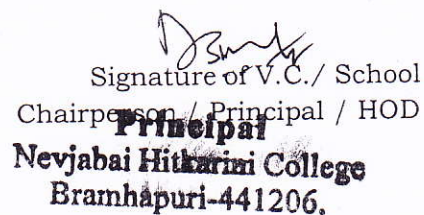 Signature of V.C./ School
Chairperson / Principal / HOD
Principal
Nevjabai Hitkarini College
Bramhapuri-441206.